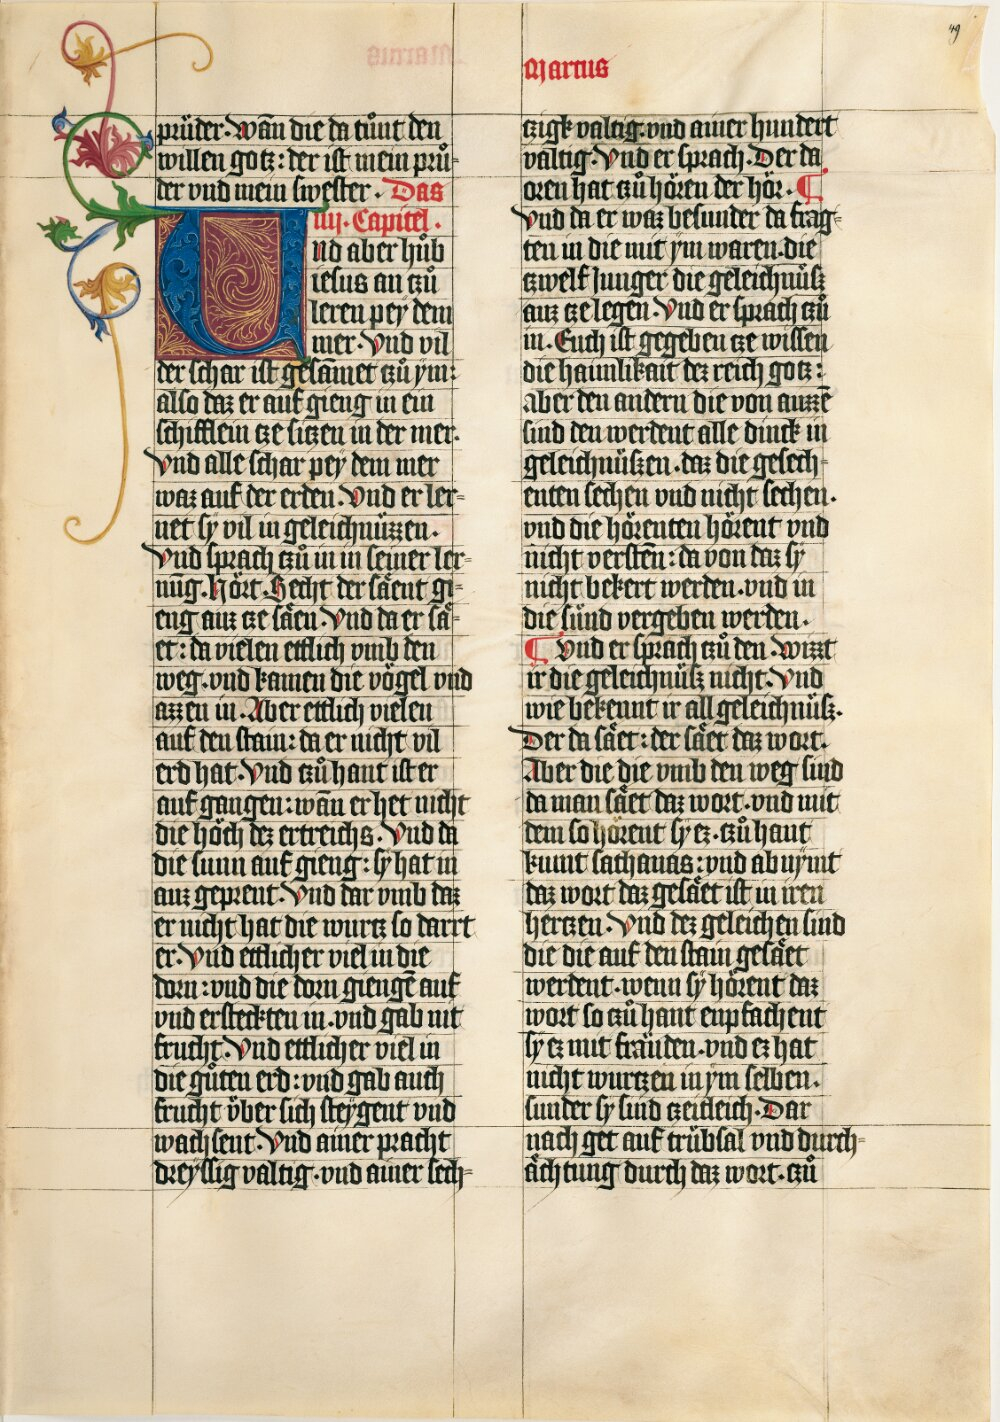 49
Marcus
prüder. Wãn die da tůnt den
willen gotz: der ist mein prů-
der vnd mein swester. Das
iiij. Capitel.
Und aber hůb
iesus an tzů
leren pey dem
mer. Vnd vil
der schar ist gesãmet tzů ym:
also daz er auf gieng in ein
schifflein tze sitzen in der mer.
Vnd alle schar pey dem mer
waz auf der erden. Vnd er ler-
net sÿ vil in geleichnüzzen.
Vnd sprach tzů in in seiner ler-
nũg. Hört. Secht der säent gi-
eng auz tze säen. Vnd da er sä-
et: da vielen ettlich vmb den
weg. vnd kamen die vögel vnd
azzen in. Aber ettlich vielen
auf den stain: da er nicht vil
erd hat. Vnd tzů hant ist er
auf gangen: wãn er het nicht
die höch dez ertreichs. Vnd da
die sunn auf gieng: sÿ hat in
auz geprent. Vnd dar vmb daz
er nicht hat die wurtz so darrt
er. Vnd ettlicher viel in die
dorn: vnd die dorn giengẽ auf
vnd ersteckten in. vnd gab nit
frucht. Vnd ettlicher viel in
die gůten erd: vnd gab auch
frucht über sich steÿgent vnd
wachsent. Vnd ainer pracht
dreÿssig valtig. vnd ainer sech-
tzigk valtig. vnd ainer hundert
valtig. Vnd er sprach. Der da
oren hat tzů hören der hör. ¶
Vnd da er waz besunder da frag-
ten in die mit ym waren. die
tzwelf Junger die geleichnüsz
auz tze legen. Vnd er sprach tzů
in. Euch ist gegeben tze wissen
die haimlikait dez reich gotz:
Aber den andern die von auzzẽ
sind den werdent alle dinck in
geleichnüszen. daz die gesech-
enten sechen vnd nicht sechen.
vnd die hörenten hörent vnd
nicht verstẽn: da von daz sÿ
nicht bekert werden. vnd in
die sünd vergeben werden.
¶ Vnd er sprach tzů den. Wizzt
ir die geleichnüsz nicht. Vnd
wie bekennt ir all geleichnüsz.
Der da säet: der säet daz wort.
Aber die die vmb den weg sind
da man säet daz wort. vnd mit
dem so hörent sÿ ez. tzů hant
kumt sathanas: vnd ab nÿmt
daz wort daz gesäet ist in iren
hertzen. Vnd dez geleichen sind
die die auf den stain gesäet
werdent. wenn sÿ hörent daz
wort so tzů hant enpfachent
sÿ ez mit fräuden. vnd ez hat
nicht wurtzen in ÿm selben.
sunder sÿ sind tzeitleich. Dar
nach get auf trübsal vnd durch-
ächtung durch daz wort. tzů